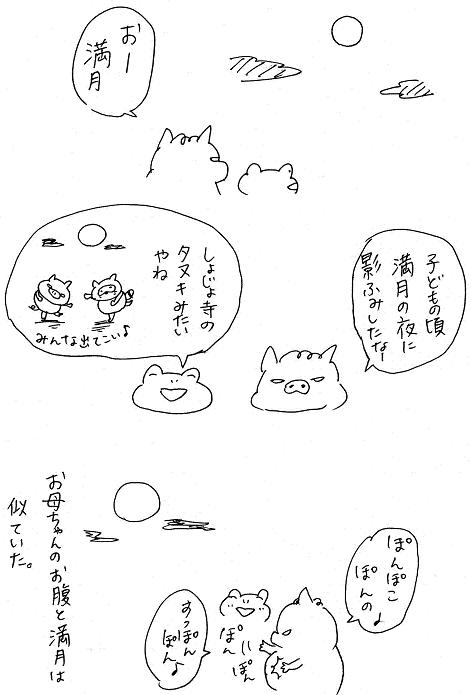 おー
満月
子どもの頃
満月の夜に
影ふみしたなー
しょじょ寺の
タヌキみたい
やね
みんな出てこい♪
ぽんぽこ
ぽんの♪
すっぽん
ぽん♪
お母ちゃんのお腹と満月は
似ていた。